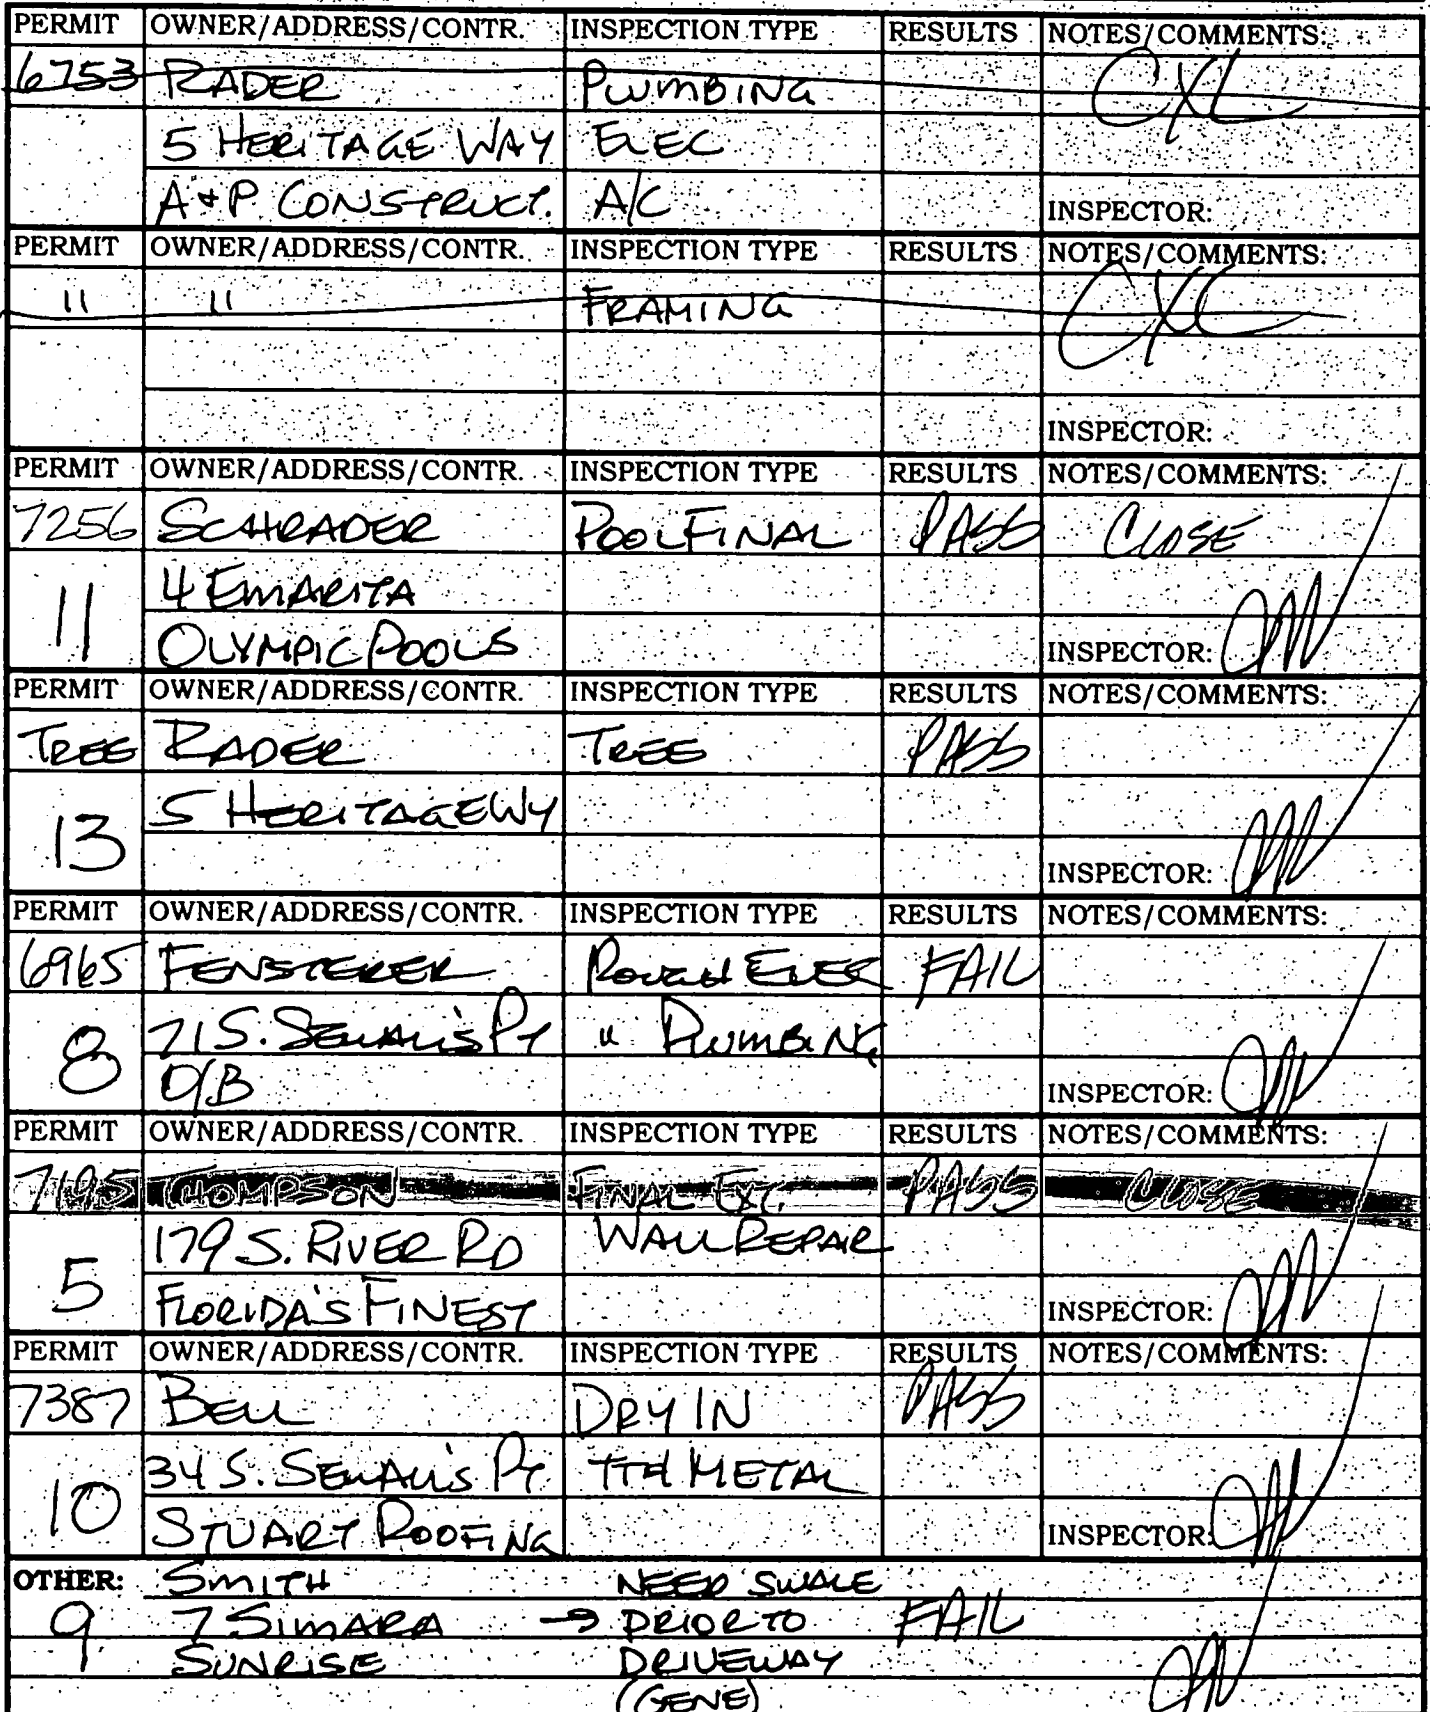 PERMIT OWNER/ADDRESS/CONTR. INSPECTION TYPE RESULTS NOTES/COMMENTS:
6753 RADER PLUMBING CXL
5 HERITAGE WAY ELEC
A+P CONSTRUCT. A/C INSPECTOR:
PERMIT OWNER/ADDRESS/CONTR. INSPECTION TYPE RESULTS NOTES/COMMENTS:
" " FRAMING CXL
INSPECTOR:
PERMIT OWNER/ADDRESS/CONTR. INSPECTION TYPE RESULTS NOTES/COMMENTS:
7256 SCHRADER POOL FINAL PASS CLOSE
11 4 EMARITA
OLYMPIC POOLS INSPECTOR:
PERMIT OWNER/ADDRESS/CONTR. INSPECTION TYPE RESULTS NOTES/COMMENTS:
TREE RADER TREE PASS
13 5 HERITAGE WY
INSPECTOR:
PERMIT OWNER/ADDRESS/CONTR. INSPECTION TYPE RESULTS NOTES/COMMENTS:
6965 FENSTERER ROUGH ELEC FAIL
8 71 S. SEWALL'S PT " PLUMBING
O/B INSPECTOR:
PERMIT OWNER/ADDRESS/CONTR. INSPECTION TYPE RESULTS NOTES/COMMENTS:
7195 THOMPSON FINAL EXT. PASS CLOSE
5 179 S. RIVER RD WALL REPAIR
FLORIDA'S FINEST INSPECTOR:
PERMIT OWNER/ADDRESS/CONTR. INSPECTION TYPE RESULTS NOTES/COMMENTS:
7387 BELL DRY IN PASS
10 34 S. SEWALL'S PT TTH METAL
STUART ROOFING INSPECTOR:
OTHER: SMITH NEED SWALE
9 7 SIMARA → PRIOR TO FAIL
SUNRISE DRIVEWAY
(GENE)